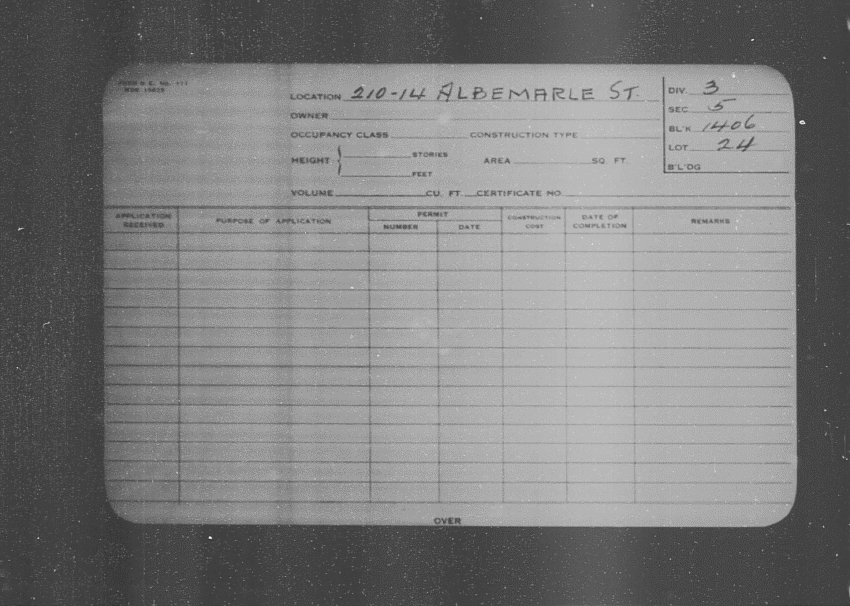 LOCATION 210-14 ALBEMARLE ST. DIV. 3
OWNER SEC 5
OCCUPANCY CLASS CONSTRUCTION TYPE BL'K 1406
HEIGHT STORIES AREA SQ. FT. LOT 24
FEET B'L'DG
VOLUME CU. FT. CERTIFICATE NO.
APPLICATION RECEIVED PURPOSE OF APPLICATION PERMIT CONSTRUCTION COST DATE OF COMPLETION REMARKS
NUMBER DATE
OVER